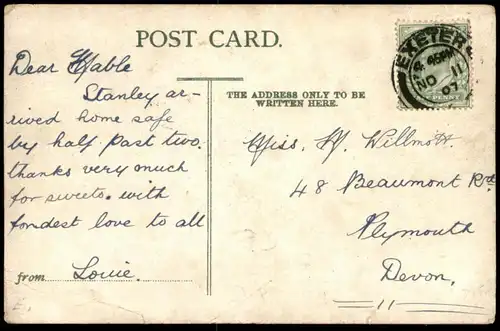 POST CARD.
Dear Mable
Stanley ar-
rived home safe
by half past two.
thanks very much
for sweets. with
fondest love to all
from Louie.
THE ADDRESS ONLY TO BE
WRITTEN HERE.
Miss. M. Willmott.
48 Beaumont Rd
Plymouth
Devon.
EXETER
NO 11
07
PENNY